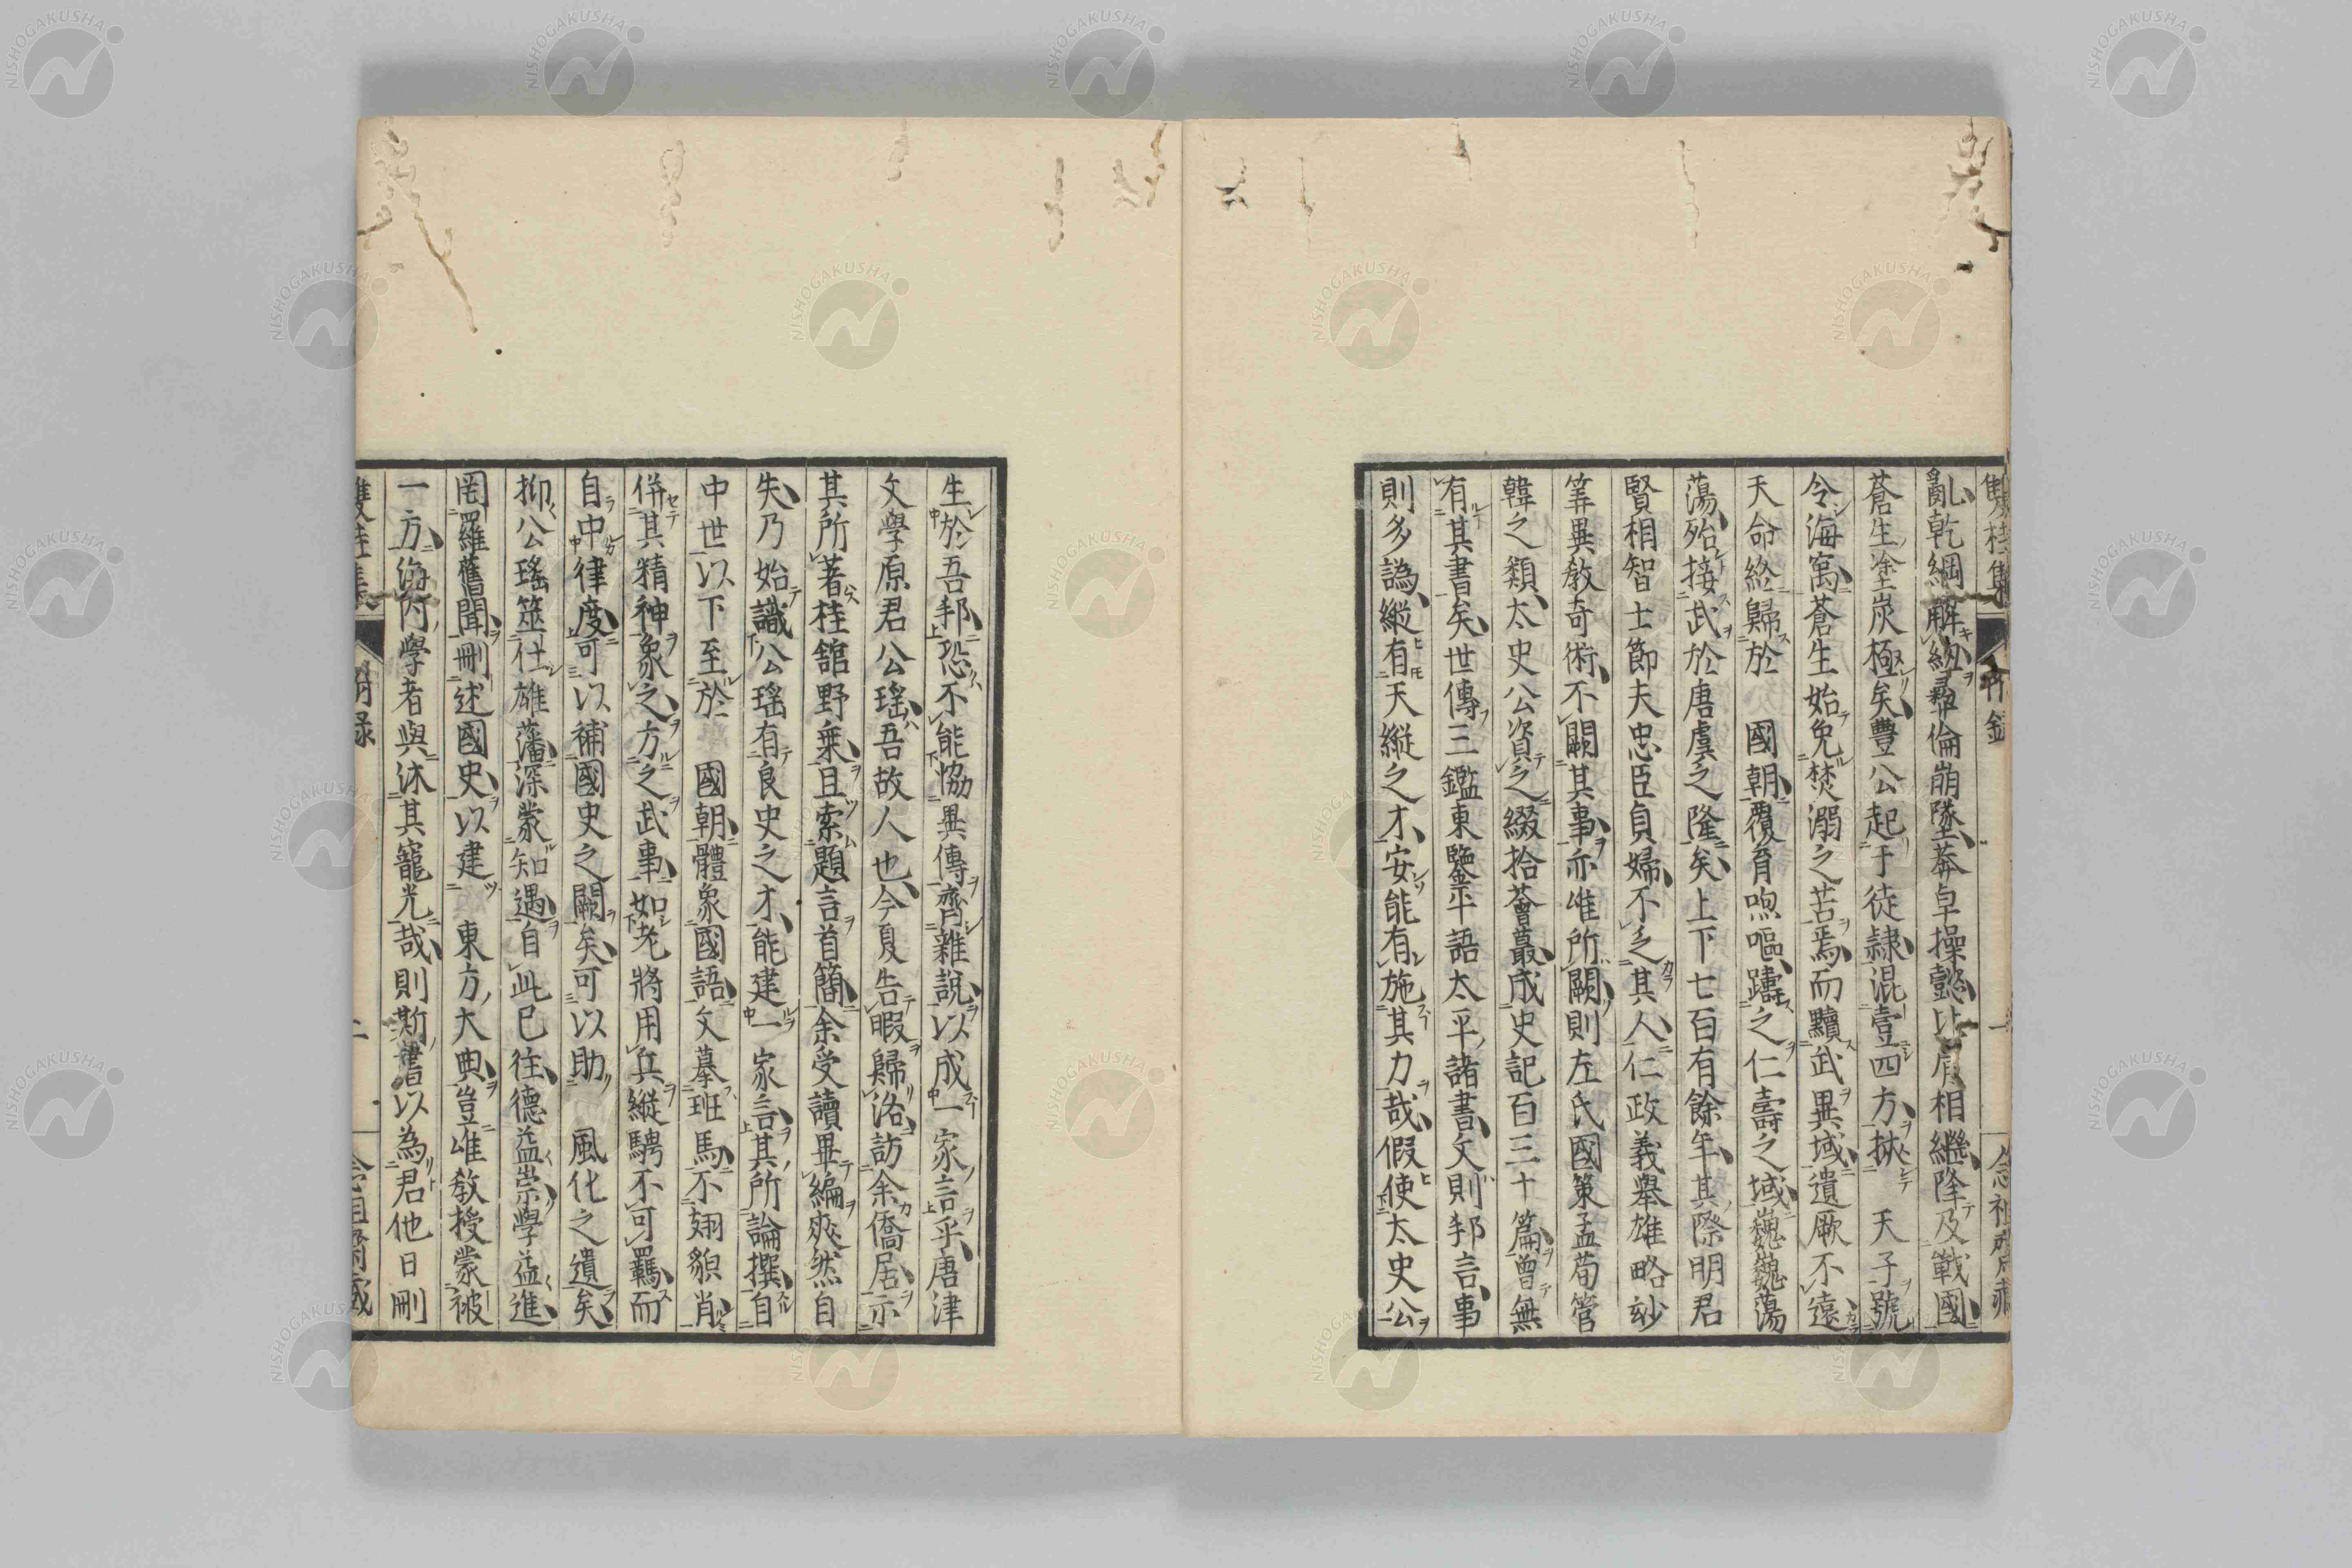 雙桂集 附録 一
亂乾綱解紐彝倫崩墜莽卓操懿比肩相繼降及戰國
蒼生塗炭極矣豐公起于徒隷混壹四方挾 天子號
令海寓蒼生始免焚溺之苦焉而黷武異域遺厥不遠
天命終歸於 國朝覆育喣嘔躋之仁壽之域巍巍蕩
蕩殆接武於唐虞之隆矣上下七百有餘年其際明君
賢相智士節夫忠臣貞婦不乏其人仁政義舉雄略玅
筭異教奇術不闕其事亦唯所闕則左氏國策孟荀管
韓之類太史公資之綴拾薈蕞成史記百三十篇曾無
有其書矣世傳三鑑東鑒平語太平諸書文則邦言事
則多譌縱有天縱之才安能有施其力哉假使太史公
生於吾邦恐不能恊異傳齊雜說以成一家言乎唐津
文學原君公瑤吾故人也今夏告暇歸洛訪余僑居示
其所著桂舘野乗且索題言首簡余受讀畢編爽然自
失乃始識公瑤有良史之才能建一家言其所論撰自
中世以下至於 國朝體象國語文摹班馬不翅貌肖
併其精神象之方之武事如老將用兵縱騁不可羈而
自中律度可以補國史之闕矣可以助 風化之遺矣
抑公瑤筮仕雄藩深蒙知遇自此已往德益崇學益進
罔羅舊聞刪述國史以建 東方大典豈唯教授蒙被
一方海内學者與沐其寵光哉則斯書以為君他日刪
雙桂集 附録 二